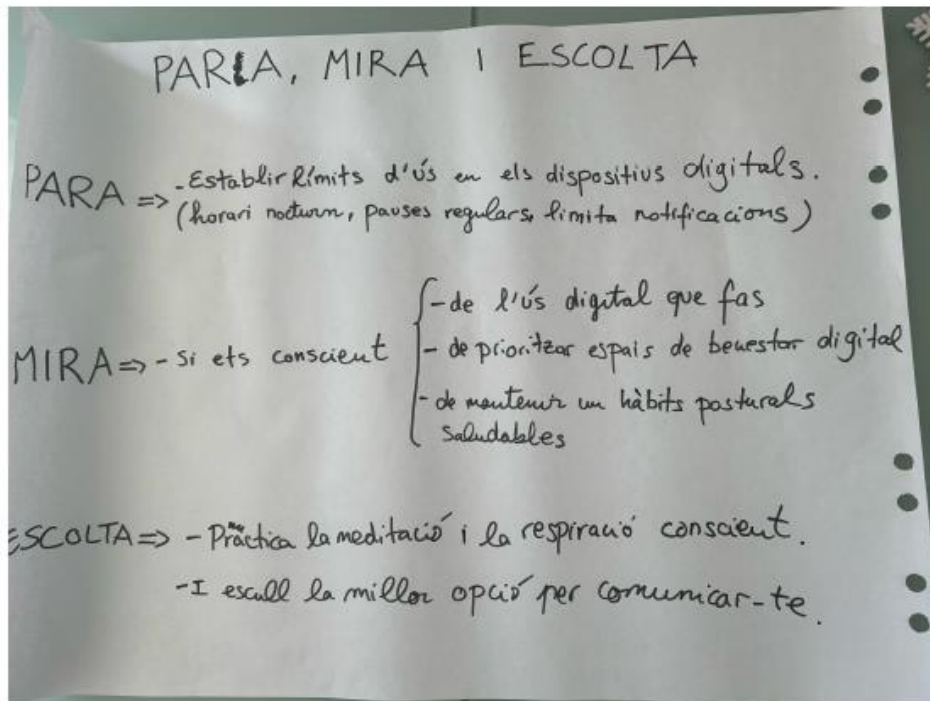 PARLA, MIRA I ESCOLTA
PARA => - Establir límits d'ús en els dispositius digitals.
(horari nocturn, pauses regulars, limita notificacions)
MIRA => - Si ets conscient
- de l'ús digital que fas
- de prioritzar espais de benestar digital
- de mantenir un hàbits posturals
saludables
ESCOLTA => - Pràctica la meditació i la respiració conscient.
- I escull la millor opció per comunicar-te.